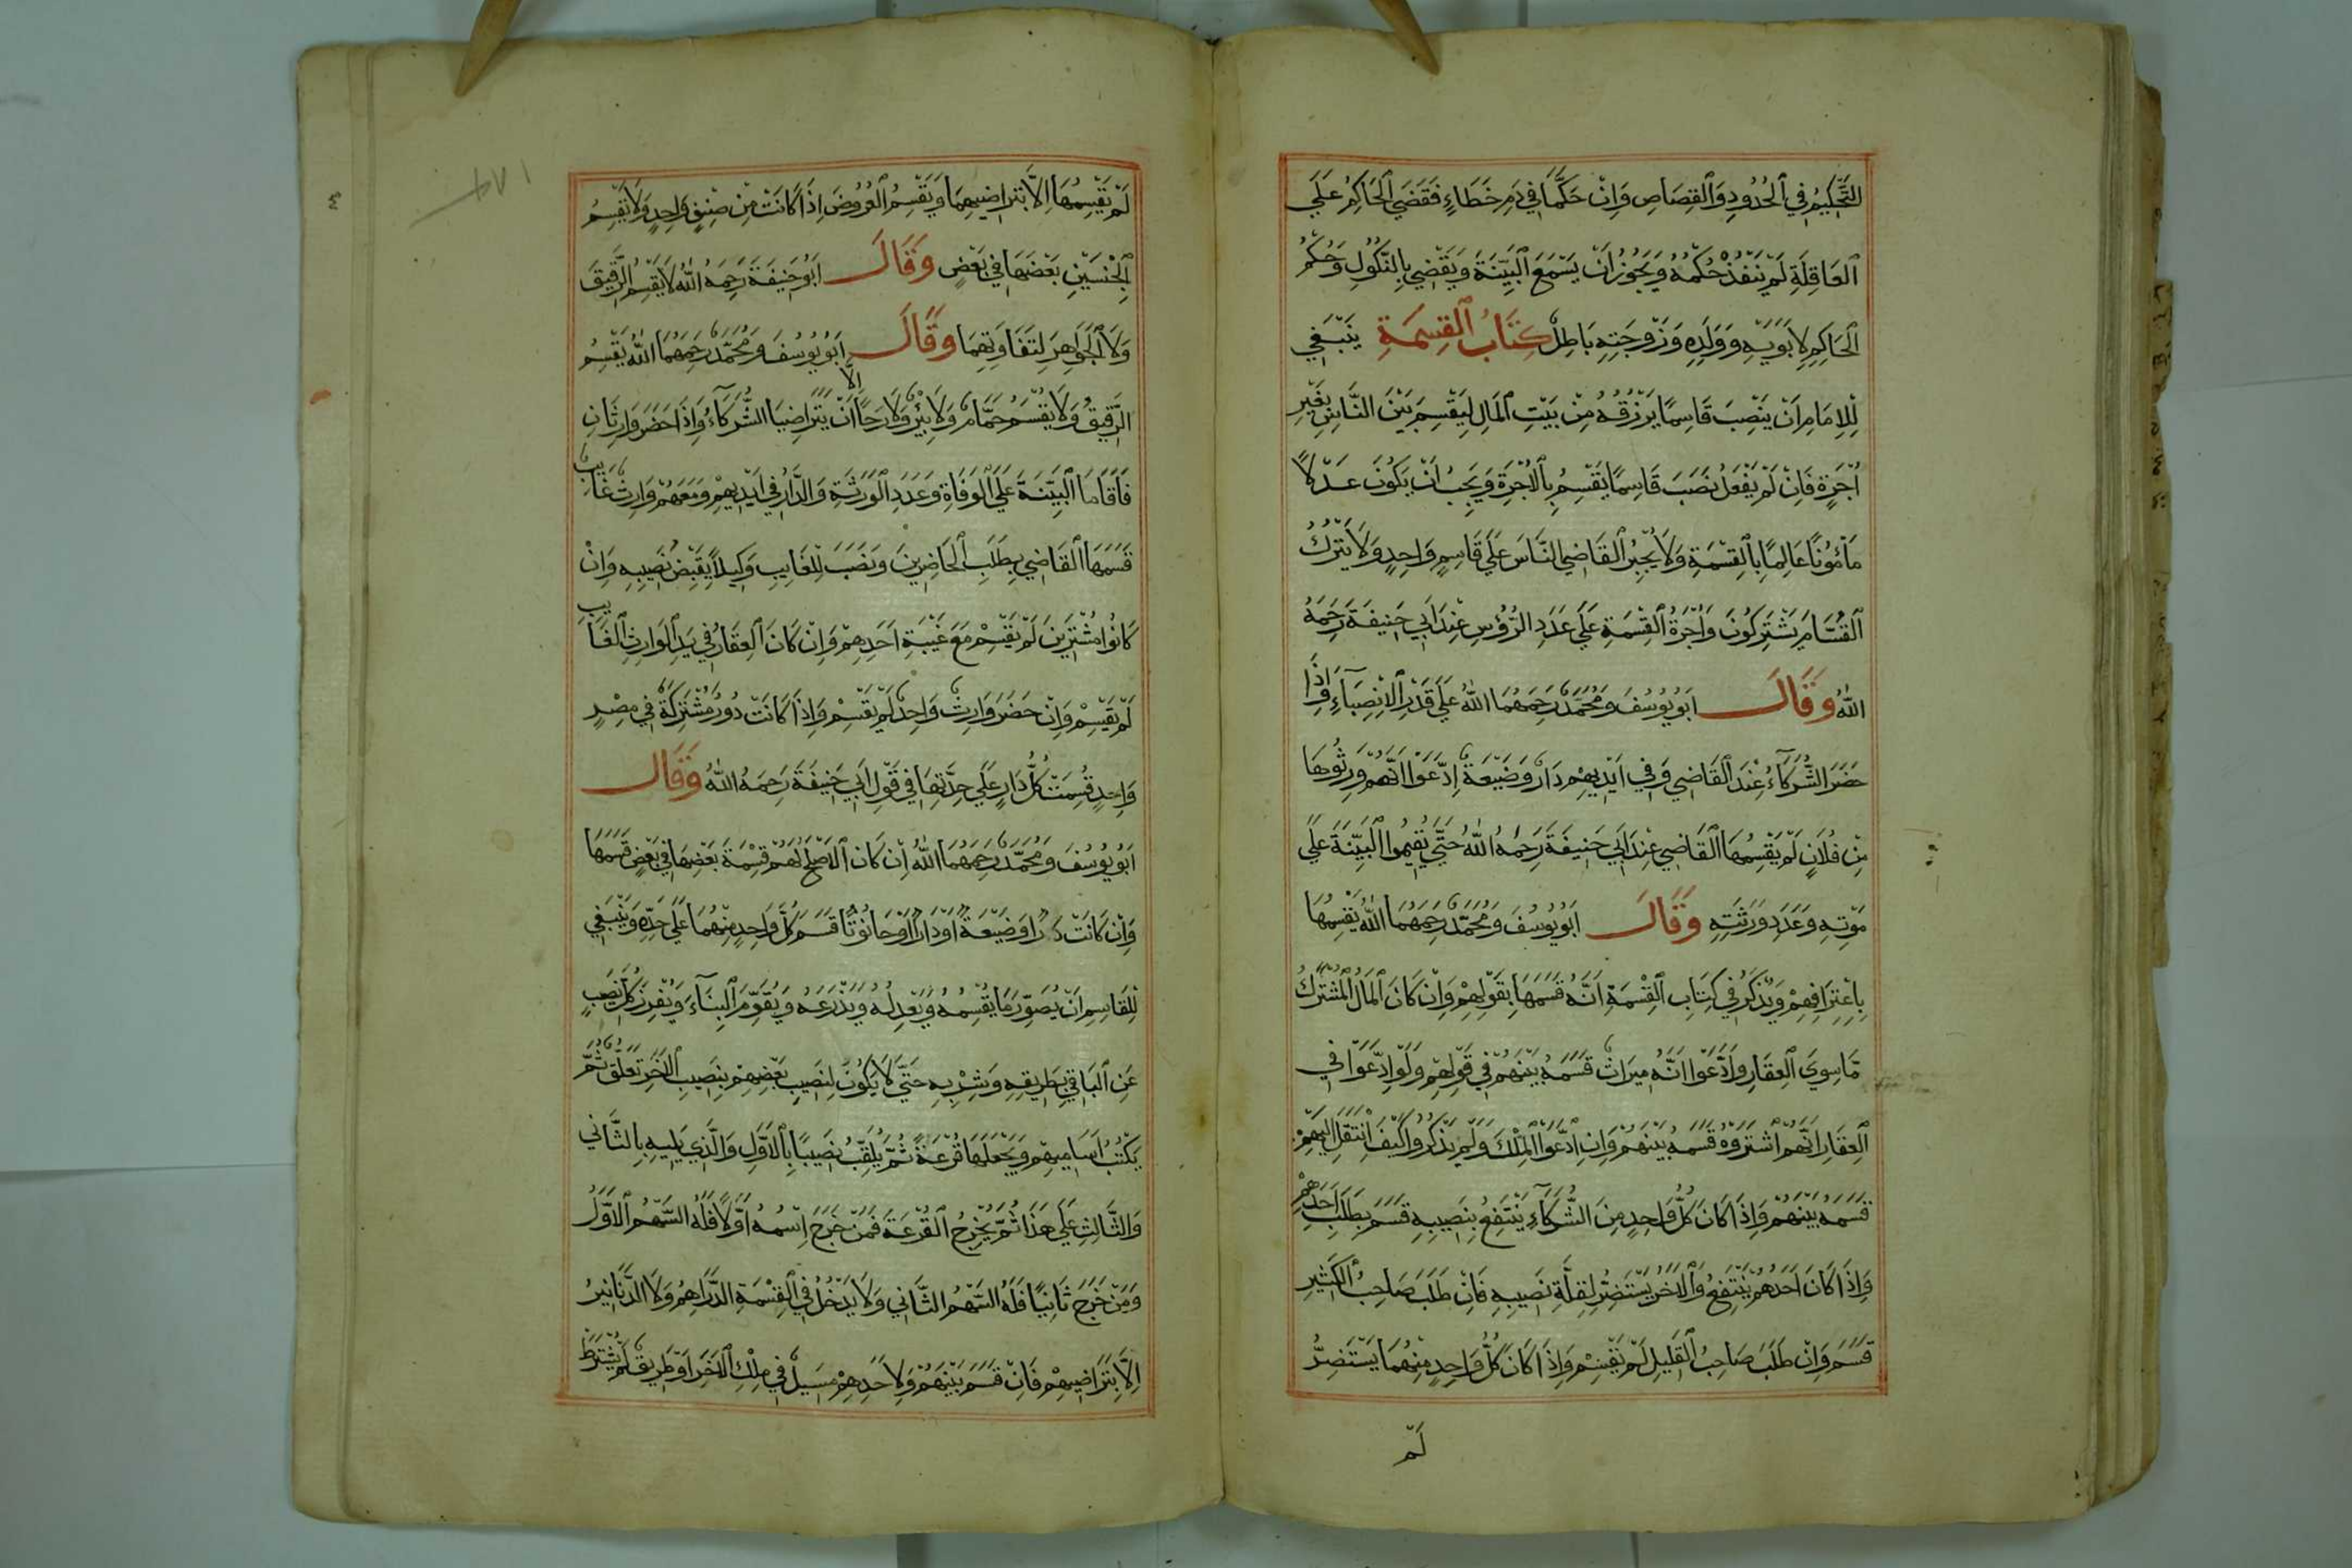 التَّحْكِيْمُ فِي الْحُدُودِ وَالْقِصَاصِ وَاِنْ حَكَّمَا فِي دَمِ خَطَاءٍ فَقَضَي الْحَاكِمُ عَلَي
الْعَاقِلَةِ لَمْ يَنْفُذْ حُكْمُهُ وَيَجُوْزُ اَنْ يَسْمَعَ الْبَيِّنَةَ وَيَقْضِي بِالنُّكُوْلِ وَحُكْمُ
الْحَاكِمِ لِاَبَوَيْهِ وَوَلَدِهِ وَزَوْجَتِهِ بَاطِلٌ كِتَابُ الْقِسْمَةِ يَنْبَغِي
لِلْاِمَامِ اَنْ يَنْصِبَ قَاسِمًا يَرْزُقُهُ مِنْ بَيْتِ الْمَالِ لِيَقْسِمَ بَيْنَ النَّاسِ بِغَيْرِ
اُجْرَةٍ فَاِنْ لَمْ يَفْعَلْ نَصَبَ قَاسِمًا يَقْسِمُ بِالْاُجْرَةِ وَيَجِبُ اَنْ يَكُوْنَ عَدْلًا
مَأْمُوْنًا عَالِمًا بِالْقِسْمَةِ وَلَا يُجْبِرُ الْقَاضِي النَّاسَ عَلَي قَاسِمٍ وَاحِدٍ وَلَا يَتْرُكُ
الْقُسَّامَ يَشْتَرِكُوْنَ وَاُجْرَةُ الْقِسْمَةِ عَلَي عَدَدِ الرُّؤُسِ عِنْدَ اَبِي حَنِيْفَةَ رَحِمَهُ
اللّٰهُ وَقَالَ اَبُوْيُوْسُفَ وَمُحَمَّدٌ رَحِمَهُمَا اللّٰهُ عَلَي قَدْرِ الْاَنْصِبَاءِ وَاِذَا
حَضَرَ الشُّرَكَآءُ عِنْدَ الْقَاضِي وَفِي اَيْدِيْهِمْ دَارٌ وَضَيْعَةٌ اِدَّعَوْا اَنَّهُمْ وَرِثُوْهَا
مِنْ فُلَانٍ لَمْ يَقْسِمْهَا الْقَاضِي عِنْدَ اَبِي حَنِيْفَةَ رَحِمَهُ اللّٰهُ حَتَّي يُقِيْمُوا الْبَيِّنَةَ عَلَي
مَوْتِهِ وَعَدَدِ وَرَثَتِهِ وَقَالَ اَبُوْيُوْسُفَ وَمُحَمَّدٌ رَحِمَهُمَا اللّٰهُ يَقْسِمُهَا
بِاِعْتِرَافِهِمْ وَيُذْكَرُ فِي كِتَابِ الْقِسْمَةِ اَنَّهُ قَسَمَهَا بِقَوْلِهِمْ وَاِنْ كَانَ الْمَالُ الْمُشْتَرَكُ
مَا سِوَي الْعِقَارِ وَادَّعَوْا اَنَّهُ مِيْرَاثٌ قَسَمَهُ بَيْنَهُمْ فِي قَوْلِهِمْ وَلَوْ اِدَّعَوْا فِي
الْعِقَارِ اَنَّهُمْ اشْتَرَوْهُ قَسَمَهُ بَيْنَهُمْ وَاِنِ ادَّعَوُا الْمِلْكَ وَلَمْ يَذْكُرُوا كَيْفَ انْتَقَلَ اِلَيْهِمْ
قَسَمَهُ بَيْنَهُمْ وَاِذَا كَانَ كُلُّ وَاحِدٍ مِنَ الشُّرَكَآءِ يَنْتَفِعُ بِنَصِيْبِهِ قَسَمَ بِطَلَبِ اَحَدِهِمْ
وَاِذَا كَانَ اَحَدُهُمْ يَنْتَفِعُ وَالْاٰخَرُ يَسْتَضِرُّ لِقِلَّةِ نَصِيْبِهِ فَاِنْ طَلَبَ صَاحِبُ الْكَثِيْرِ
قَسَمَ وَاِنْ طَلَبَ صَاحِبُ الْقَلِيْلِ لَمْ يَقْسِمْ وَاِذَا كَانَ كُلُّ وَاحِدٍ مِنْهُمَا يَسْتَضِرُّ
لَمْ
لَمْ يَقْسِمْهَا اِلَّا بِتَرَاضِيْهِمَا وَيَقْسِمُ الْعُرُوْضَ اِذَا كَانَتْ مِنْ صِنْفٍ وَاحِدٍ وَلَا يَقْسِمُ
الْجِنْسَيْنِ بَعْضَهَا فِي بَعْضٍ وَقَالَ اَبُوْحَنِيْفَةَ رَحِمَهُ اللّٰهُ لَا يَقْسِمُ الرَّقِيْقَ
وَلَا الْجَوَاهِرَ لِتَفَاوُتِهِمَا وَقَالَ اَبُوْيُوْسُفَ وَمُحَمَّدٌ رَحِمَهُمَا اللّٰهُ يَقْسِمُ
الرَّقِيْقُ وَلَا يُقْسَمُ حَمَّامٌ وَلَا بِئْرٌ وَلَا رَحًا اِلَّا اَنْ يَتَرَاضِيَا الشُّرَكَآءُ وَاِذَا حَضَرَ وَارِثَانِ
فَاَقَامَا الْبَيِّنَةَ عَلَي الْوَفَاةِ وَعَدَدِ الْوَرَثَةِ وَالدَّارُ فِي اَيْدِيْهِمْ وَمَعَهُمْ وَارِثٌ غَايِبٌ
قَسَمَهَا الْقَاضِي بِطَلَبِ الْحَاضِرِيْنَ وَنَصَبَ لِلْغَايِبِ وَكِيْلًا يَقْبِضُ نَصِيْبَهِ وَاِنْ
كَانُوْا مُشْتَرِيْنَ لَمْ يَقْسِمْ مَعَ غَيْبَةِ اَحَدِهِمْ وَاِنْ كَانَ الْعِقَارُ فِي يَدِ الْوَارِثِ الْغَايِبِ
لَمْ يَقْسِمْ وَاِنْ حَضَرَ وَارِثٌ وَاحِدٌ لَمْ يَقْسِمْ وَاِذَا كَانَتْ دُوْرٌ مُشْتَرَكَةٌ فِي مِصْرٍ
وَاحِدٍ قُسِمَتْ كُلُّ دَارٍ عَلَي حِدَّتِهَا فِي قَوْلِ اَبِي حَنِيْفَةَ رَحِمَهُ اللّٰهُ وَقَالَ
اَبُوْيُوْسُفَ وَمُحَمَّدٌ رَحِمَهُمَا اللّٰهُ اِنْ كَانَ الْاَصْلَحُ لَهُمْ قِسْمَةَ بَعْضِهَا فِي بَعْضٍ قَسَمَهَا
وَاِنْ كَانَتْ دَارًا وَضَيْعَةً اَوْ دَارًا اَوْ حَانُوْتًا قَسَمَ كُلَّ وَاحِدٍ مِنْهُمَا عَلَي حِدِّهِ وَيَنْبَغِي
لِلْقَاسِمِ اَنْ يُصَوِّرَ مَا يُقْسِمُهُ وَيَعْدِلُهُ وَيَذْرَعَهُ وَيُقَوِّمَ الْبِنَآءَ وَيُفْرِزَ كُلَّ نَصِيْبٍ
عَنِ الْبَاقِي بِطَرِيْقِهِ وَشِرْبِهِ حَتَّي لَا يَكُوْنَ لِنَصِيْبِ بَعْضِهِمْ بِنَصِيْبِ الْاٰخَرِ تَعَلُّقٌ ثُمَّ
يَكْتُبُ اَسَامِيْهِمْ وَيَجْعَلَهَا قُرْعَةً ثُمَّ يُلَقِّبُ نَصِيْبًا بِالْاَوَّلِ وَالَّذِي يَلِيْهِ بِالثَّانِي
وَالثَّالِثِ عَلَي هٰذَا ثُمَّ يُخْرِجُ الْقُرْعَةَ فَمَنْ خَرَجَ اِسْمُهُ اَوَّلًا فَلَهُ السَّهْمُ الْاَوَّلُ
وَمَنْ خَرَجَ ثَانِيًا فَلَهُ السَّهْمُ الثَّانِي وَلَا يَدْخُلُ فِي الْقِسْمَةِ الدَّرَاهِمُ وَلَا الدَّنَانِيْرُ
اِلَّا بِتَرَاضِيْهِمْ فَاِنْ قَسَمَ بَيْنَهُمْ وَلِاَحَدِهِمْ مَسِيْلٌ فِي مِلْكِ الْاٰخَرِ اَوْ طَرِيْقٌ لَمْ يُشْتَرَطْ